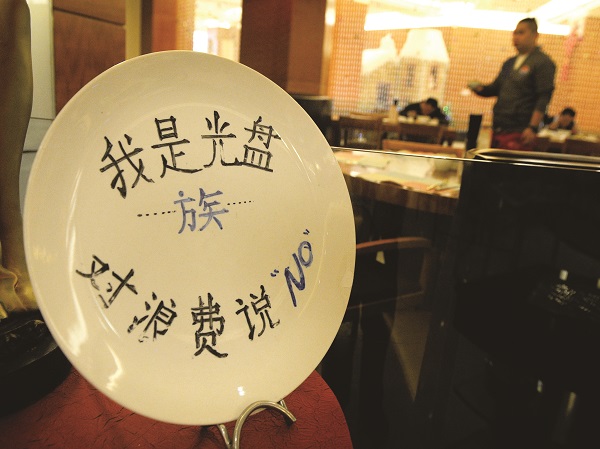 我是光盘
......族......
对浪费说"NO"